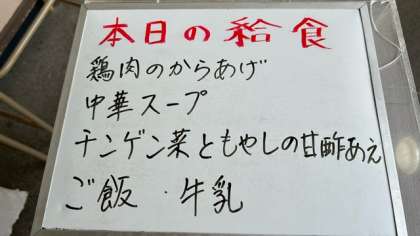 本日の給食
鶏肉のからあげ
中華スープ
チンゲン菜ともやしの甘酢あえ
ご飯・牛乳